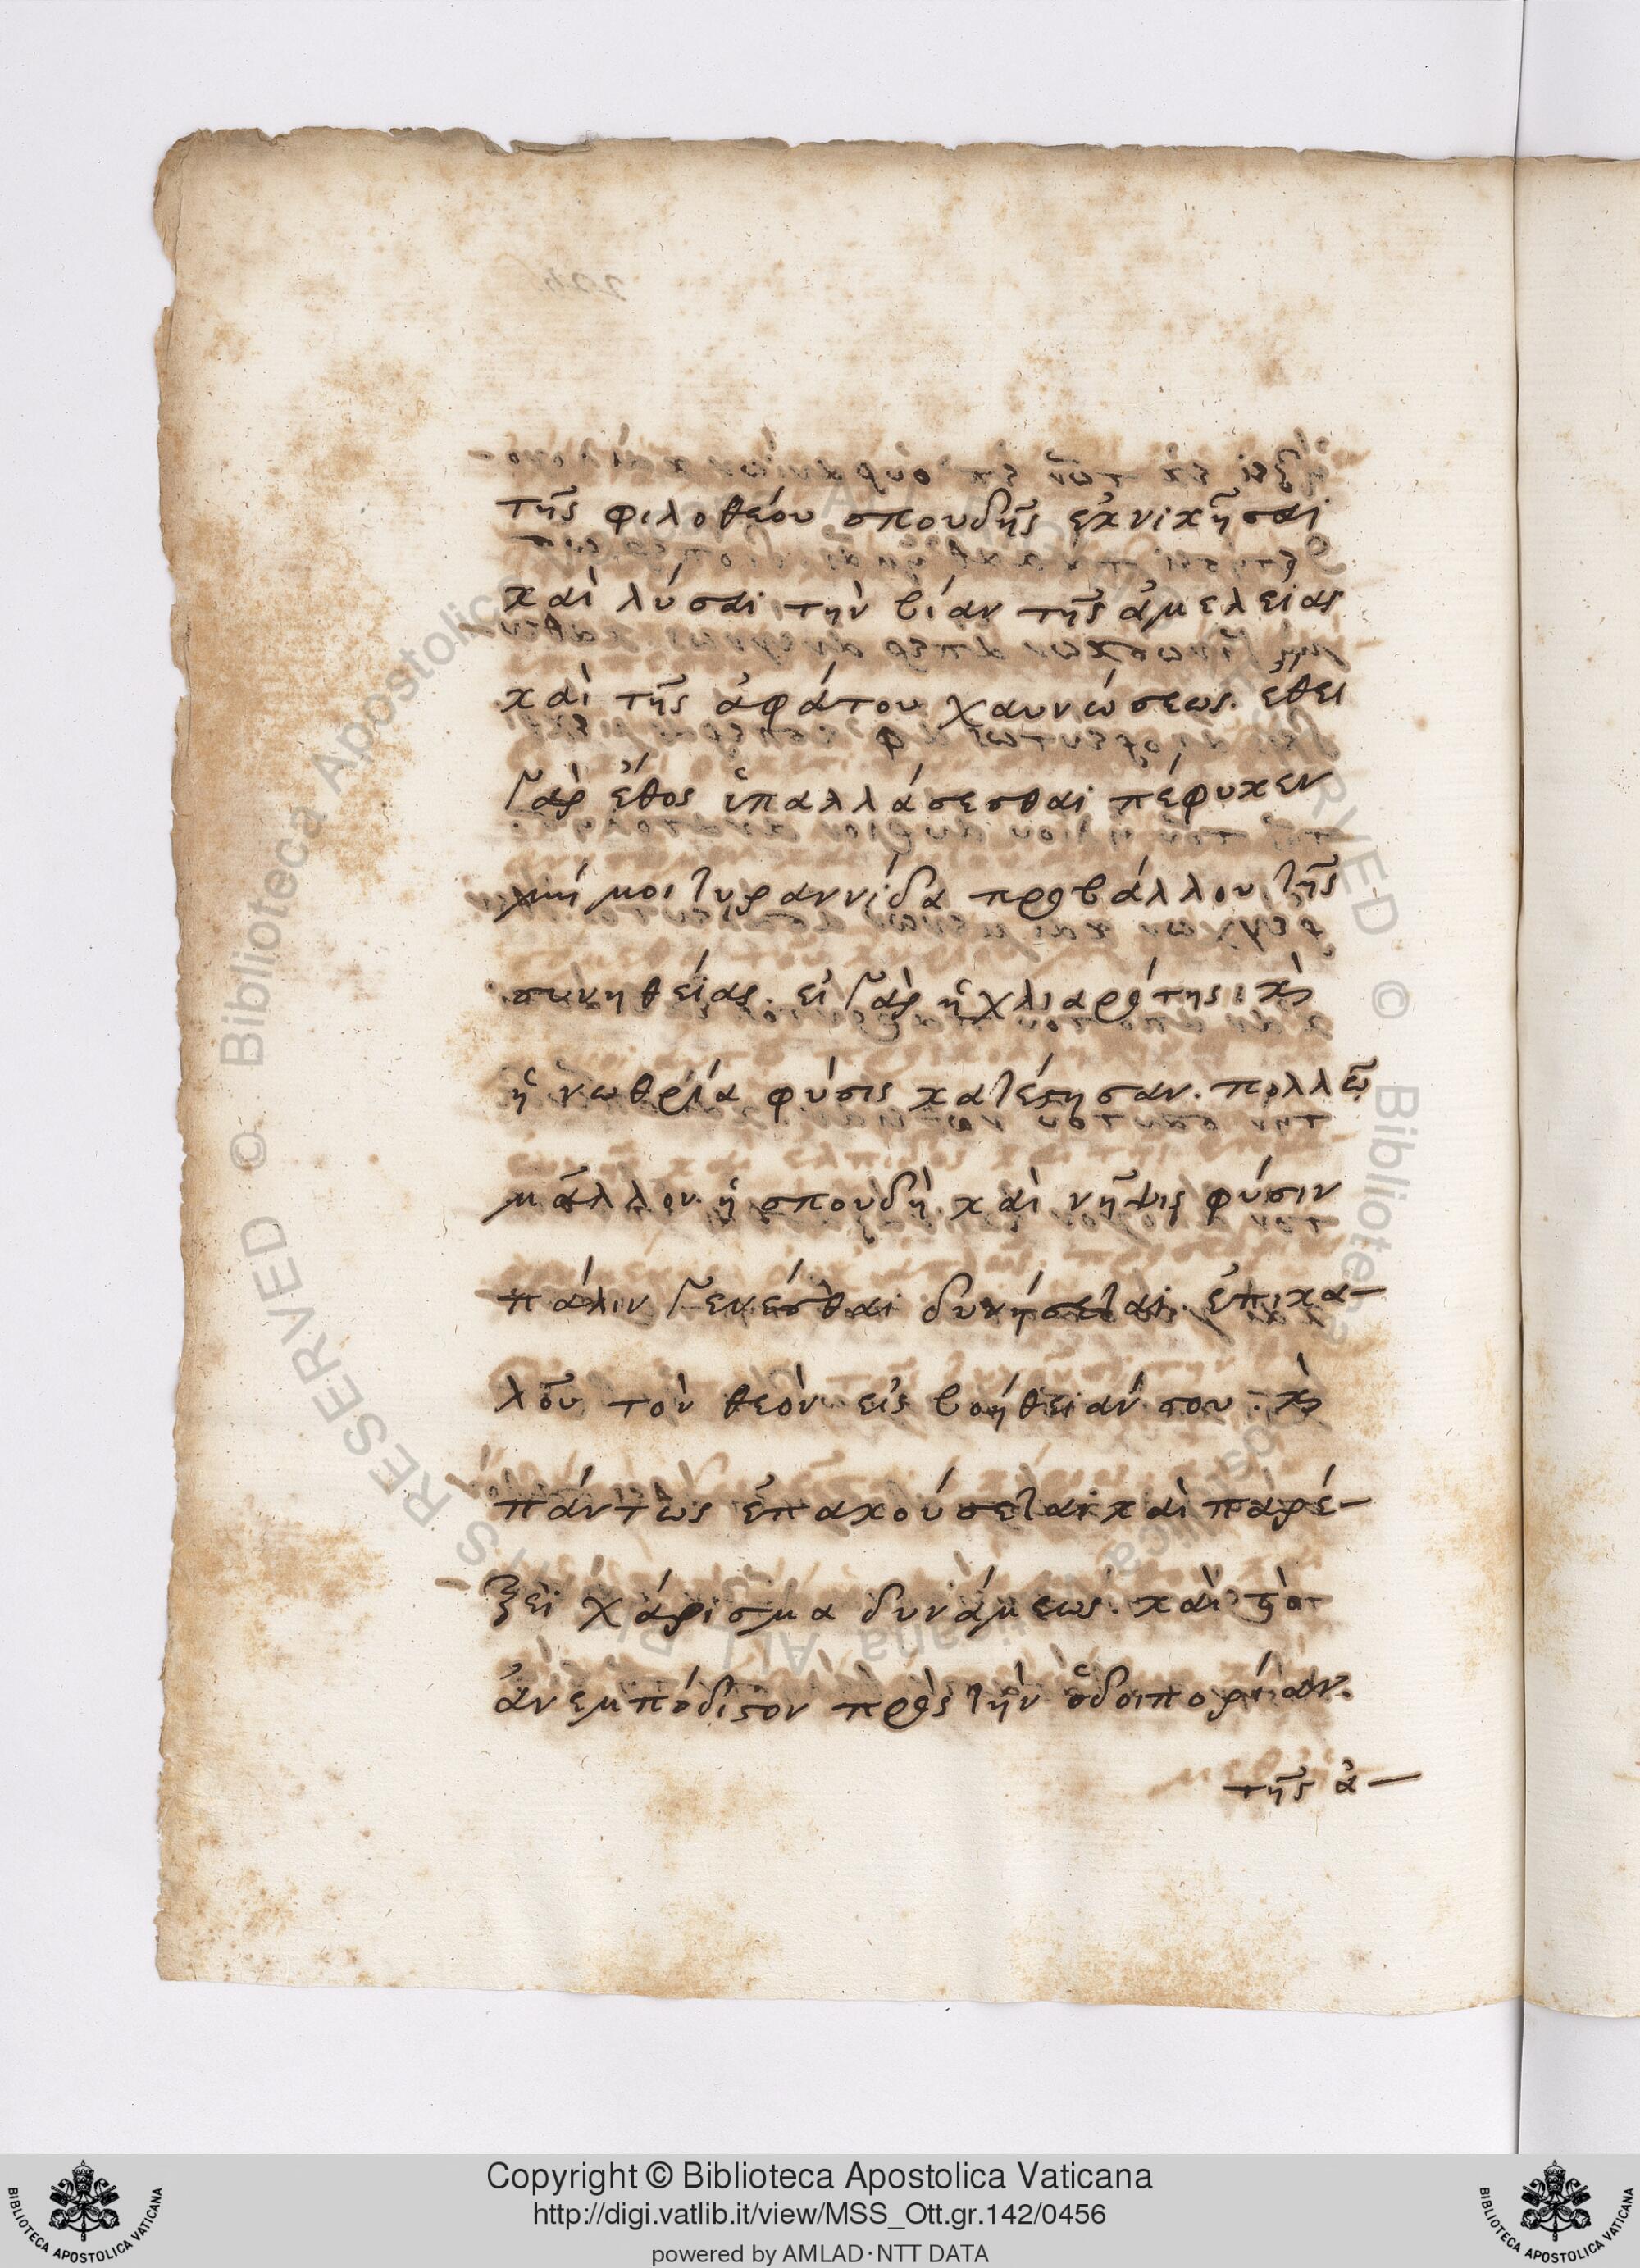 τῆς φιλοθέου σπουδῆς ἐκνικῆσαι
καὶ λύσαι τὴν βίαν τῆς ἀμελείας
καὶ τῆς ἀφάτου χαυνώσεως. ἔθει
γὰρ ἔθος ὑπαλλάσεσθαι πέφυκεν
μή μοι τυραννίδα προβάλλου τῆς
συνηθείας. εἰ γὰρ ἡ χλιαρότης: κὶ
ἡ νωθρία φύσις κατέστησαν. πολλῶ
μᾶλλον ἡ σπουδὴ καὶ νῆψις φύσιν
πάλιν γενέσθαι δυνήσεται. ἐπικα-
λοῦ τὸν θεὸν εἰς βοήθειάν σου. κὶ
πάντως ἐπακούσεται καὶ παρέ-
ξει χάρισμα δυνάμεως. καὶ τὸ
ἀνεμπόδιστον πρὸς τὴν ὁδοιπορίαν.
τῆς ἀ-
Copyright © Biblioteca Apostolica Vaticana
http://digi.vatlib.it/view/MSS_Ott.gr.142/0456
powered by AMLAD·NTT DATA
BIBLIOTECA APOSTOLICA VATICANA
BIBLIOTECA APOSTOLICA VATICANA